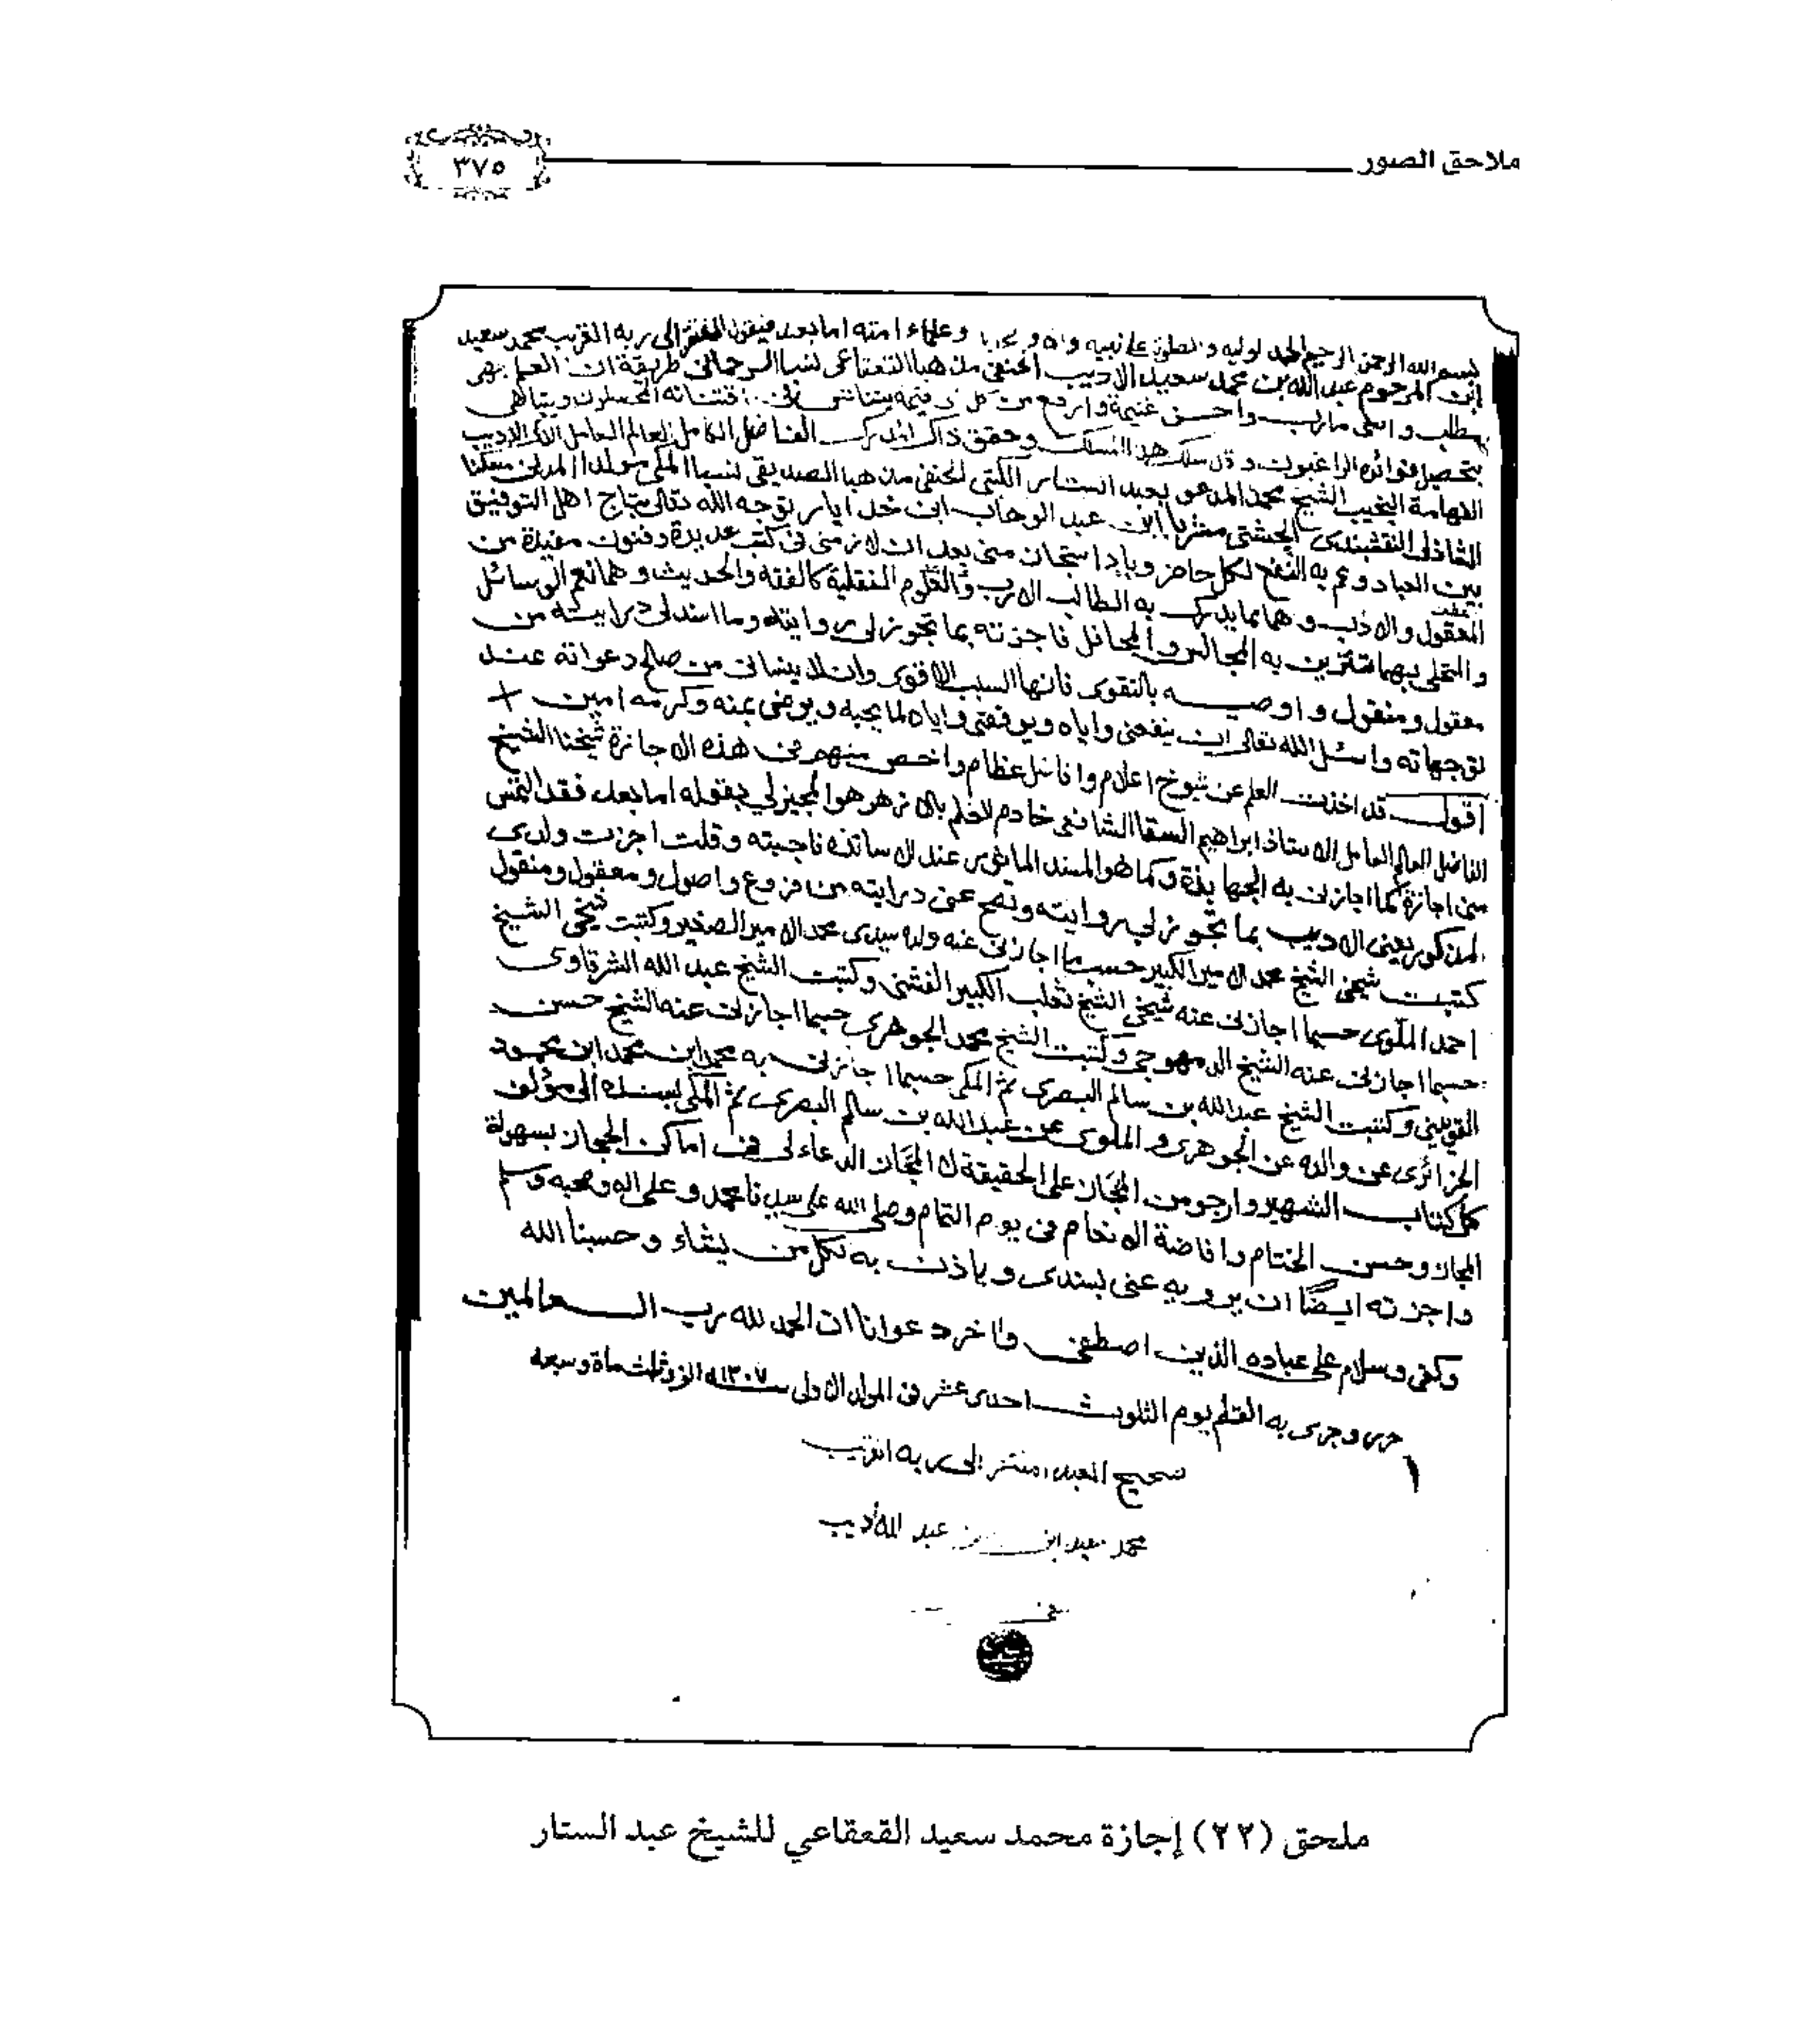 ملاحق الصور
٣٧٥
بسم الله الرحمن الرحيم الحمد لوليه والصلوة على نبيه واله وصحبه وعلماء امته اما بعد فيقول المفتقر الى ربه القريب محمد سعيد
ابن المرحوم عبد الله بن محمد سعيد الاديب الحنفي مذهبا القعقاعى نسبا الرحمانى طريقة ان العلم
مطلب واسنى مارب واحسن غنيمة وارفع من كل ذى قيمة يتنافس فى
بتحصيل فوائده الراغبون سلك هذا المسلك وحقق ذاك المدرك الفاضل الكامل العالم العامل الاديب
الفهامة النجيب الشيخ محمد المدعو بعبد الستار الكتبى الحنفى مذهبا الصديقى نسبا المكى مولدا المدنى مسكنا
الشاذلى النقشبندى الجشتى مشربا ابن عبد الوهاب ابن خدايار توجه الله تعالى بتاج اهل التوفيق
بين العباد وعم به النفع لكل حاضر وباد استجاز منى بعد ان لازمنى فى كتب عديدة وفنون مفيدة من
المعقول والادب وهما مما يدرك به الطالب الارب والعلوم النقلية كالفقه والحديث وهما نعم الوسائل
والتحلى بهما تتزين به المجالس والمحافل فاجزته بما تجوز لى روايته وما اسند لى درايته من
معقول ومنقول واوصيه بالتقوى فانها السبب الاقوى وان لا ينسانى من صالح دعواته عند
توجهاته واسئل الله تعالى ان ينفعنى واياه ويوفقنى واياه لما يحبه ويرضى بمنه وكرمه امين
اقول قد اخذت العلم عن شيوخ اعلام وافاضل عظام واخص منهم فى هذه الاجازة شيخنا الشيخ
الفاضل العالم العامل الاستاذ ابراهيم السقا الشافعى خادم العلم بالازهر هو المجيز لي بقوله اما بعد فقد التمس
منى اجازة كما اجازنى به الجهابذة وكما هو المسند الماثور عند الاساتذه فاجبته وقلت اجزت ولدى
المذكور يعنى الاديب بما تجوز لي روايته وتصح عنى درايته من فروع واصول ومعقول ومنقول
كتبت شيخى الشيخ محمد الامير الكبير حسبما اجازنى عنه ولده سيدى محمد الامير الصغير وكتبت شيخى الشيخ
احمد الملوى حسبما اجازنى عنه شيخى الشيخ ثعلب الكبير الفشنى وكتبت الشيخ عبد الله الشرقاوى
حسبما اجازنى عنه الشيخ الدمهوجى وكتبت الشيخ محمد الجوهرى حسبما اجازنى عنه الشيخ حسن
القويسنى وكتبت الشيخ عبد الله بن سالم البصرى ثم المكى حسبما اجازنى به محمد ابن محمد ابن محمود
الجزائرى عن والده عن الجوهرى والملوى عن عبد الله بن سالم البصرى ثم المكى بسنده الى مؤلف
كل كتاب الشهير وارجو من المجاز على الحقيقة لا المجاز الدعاء لى فى اماكن الحجاز بسهولة
المجاز وحسن الختام وافاضة الانعام فى يوم التمام وصلى الله على سيدنا محمد وعلى اله وصحبه وسلم
واجزته ايضًا ان يرويه عنى بسندى وياذن به لكل من يشاء وحسبنا الله
وكفى وسلام على عباده الذين اصطفى واخر دعوانا ان الحمد لله رب العالمين
حرر وجرى به القلم يوم الثلوث احدى عشر فى المولد الاولى سنة ١٣٠٧ الف وثلث ماة وسبعه
صحيح العبد المفتقر الى ربه القريب
محمد سعيد ابن عبد الله أديب
ملحق (٢٢) إجازة محمد سعيد القعقاعي للشيخ عبد الستار